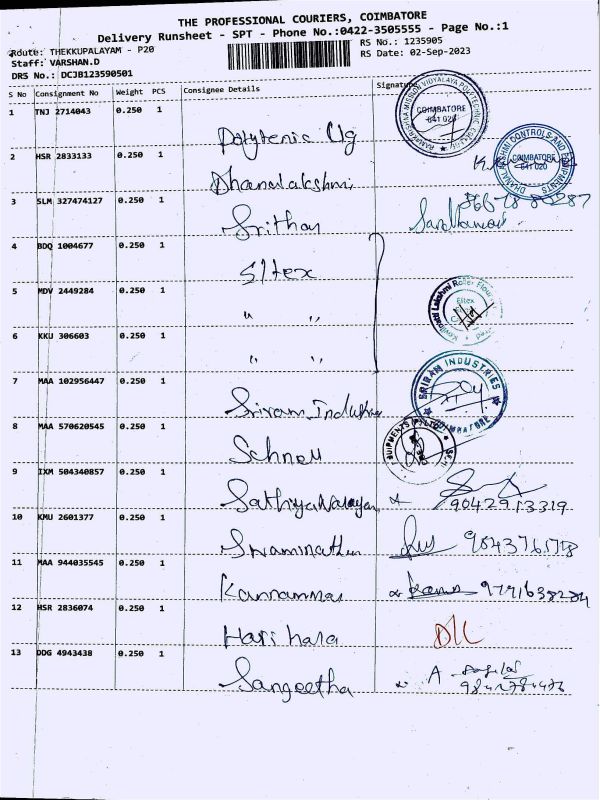 THE PROFESSIONAL COURIERS, COIMBATORE
Delivery Runsheet - SPT - Phone No.:0422-3505555 - Page No.:1
Route: THEKKUPALAYAM - P20
RS No.: 1235905
Staff: VARSHAN.D
RS Date: 02-Sep-2023
DRS No.: DCJB123590501
S No Consignment No Weight PCS Consignee Details Signature
1 TNJ 2714043 0.250 1
Polytenic Clg
COIMBATORE
641 020
2 HSR 2833133 0.250 1
Dhanalakshmi
DHANALAKSHMI CONTROLS AND EQUIPMENTS
COIMBATORE
641 020
3 SLM 327474127 0.250 1
Srithar
4 BDQ 1004677 0.250 1
Eltex
5 MDV 2449284 0.250 1
" "
Eltex
6 KKU 306603 0.250 1
" "
7 MAA 102956447 0.250 1
Sriram Industries
SRIRAM INDUSTRIES
COIMBATORE
8 MAA 570620545 0.250 1
Schnell
9 IXM 504340857 0.250 1
Sathiyanarayan
9042913319
10 KMU 2601377 0.250 1
Swaminathan
11 MAA 944035545 0.250 1
Kannammai
12 HSR 2836074 0.250 1
Hari hara
13 DDG 4943438 0.250 1
Sangeetha
A